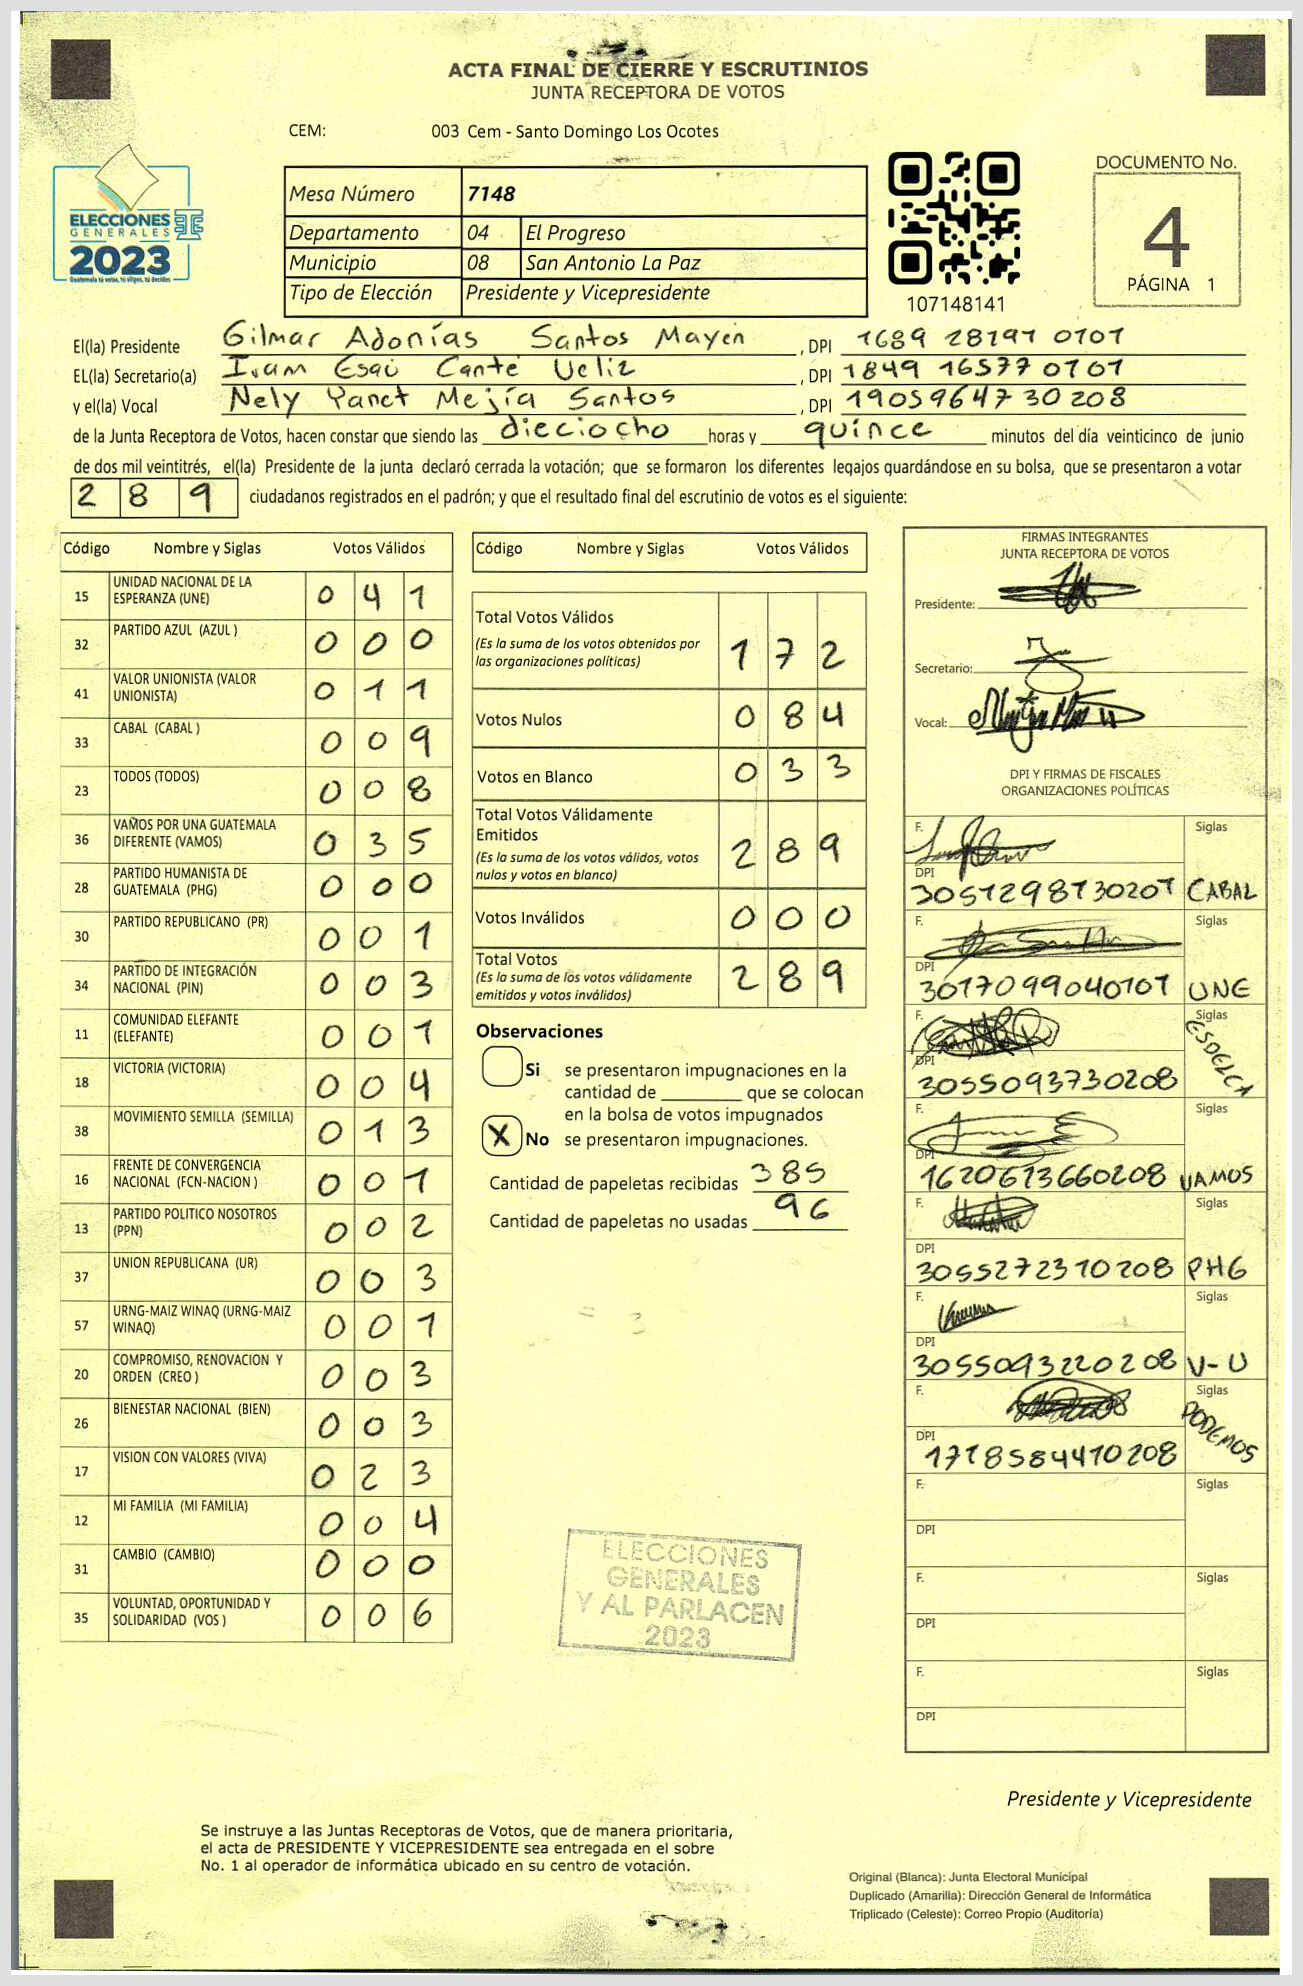 ACTA FINAL DE CIERRE Y ESCRUTINIOS
JUNTA RECEPTORA DE VOTOS
CEM: 003 Cem - Santo Domingo Los Ocotes
ELECCIONES
GENERALES
2023
Guatemala tú votas, tú eliges, tú decides
Mesa Número 7148
Departamento 04 El Progreso
Municipio 08 San Antonio La Paz
Tipo de Elección Presidente y Vicepresidente
107148141
DOCUMENTO No.
4
PÁGINA 1
El(la) Presidente Gilmar Adonías Santos Mayen, DPI 1689 28191 0101
EL(la) Secretario(a) Ivam Esaú Canté Veliz, DPI 1849 16577 0101
y el(la) Vocal Nely Yanet Mejía Santos, DPI 1905964730208
de la Junta Receptora de Votos, hacen constar que siendo las dieciocho horas y quince minutos del día veinticinco de junio
de dos mil veintitrés, el(la) Presidente de la junta declaró cerrada la votación; que se formaron los diferentes legajos guardándose en su bolsa, que se presentaron a votar
289 ciudadanos registrados en el padrón; y que el resultado final del escrutinio de votos es el siguiente:
Código Nombre y Siglas Votos Válidos
15 UNIDAD NACIONAL DE LA
ESPERANZA (UNE) 0 4 1
32 PARTIDO AZUL (AZUL ) 0 0 0
41 VALOR UNIONISTA (VALOR
UNIONISTA) 0 1 1
33 CABAL (CABAL ) 0 0 9
23 TODOS (TODOS) 0 0 8
36 VAMOS POR UNA GUATEMALA
DIFERENTE (VAMOS) 0 3 5
28 PARTIDO HUMANISTA DE
GUATEMALA (PHG) 0 0 0
30 PARTIDO REPUBLICANO (PR) 0 0 1
34 PARTIDO DE INTEGRACIÓN
NACIONAL (PIN) 0 0 3
11 COMUNIDAD ELEFANTE
(ELEFANTE) 0 0 1
18 VICTORIA (VICTORIA) 0 0 4
38 MOVIMIENTO SEMILLA (SEMILLA) 0 1 3
16 FRENTE DE CONVERGENCIA
NACIONAL (FCN-NACION ) 0 0 1
13 PARTIDO POLITICO NOSOTROS
(PPN) 0 0 2
37 UNION REPUBLICANA (UR) 0 0 3
57 URNG-MAIZ WINAQ (URNG-MAIZ
WINAQ) 0 0 1
20 COMPROMISO, RENOVACION Y
ORDEN (CREO ) 0 0 3
26 BIENESTAR NACIONAL (BIEN) 0 0 3
17 VISION CON VALORES (VIVA) 0 2 3
12 MI FAMILIA (MI FAMILIA) 0 0 4
31 CAMBIO (CAMBIO) 0 0 0
35 VOLUNTAD, OPORTUNIDAD Y
SOLIDARIDAD (VOS ) 0 0 6
Código Nombre y Siglas Votos Válidos
Total Votos Válidos
(Es la suma de los votos obtenidos por
las organizaciones políticas) 1 7 2
Votos Nulos 0 8 4
Votos en Blanco 0 3 3
Total Votos Válidamente
Emitidos
(Es la suma de los votos válidos, votos
nulos y votos en blanco) 2 8 9
Votos Inválidos 0 0 0
Total Votos
(Es la suma de los votos válidamente
emitidos y votos inválidos) 2 8 9
Observaciones
Si se presentaron impugnaciones en la
cantidad de ________ que se colocan
en la bolsa de votos impugnados
X No se presentaron impugnaciones.
Cantidad de papeletas recibidas 385
Cantidad de papeletas no usadas 96
ELECCIONES
GENERALES
Y AL PARLACEN
2023
FIRMAS INTEGRANTES
JUNTA RECEPTORA DE VOTOS
Presidente:
Secretario:
Vocal:
DPI Y FIRMAS DE FISCALES
ORGANIZACIONES POLÍTICAS
F. Siglas
DPI
3051298130201 CABAL
F. Siglas
DPI
3017099040101 UNE
F. Siglas
DPI
3055093730208 ESDELCA
F. Siglas
DPI
1620613660208 VAMOS
F. Siglas
DPI
3055272310208 PHG
F. Siglas
DPI
3055093220208 V-U
F. Siglas
DPI
1718584410208 PODEMOS
F. Siglas
DPI
F. Siglas
DPI
F. Siglas
DPI
Presidente y Vicepresidente
Se instruye a las Juntas Receptoras de Votos, que de manera prioritaria,
el acta de PRESIDENTE Y VICEPRESIDENTE sea entregada en el sobre
No. 1 al operador de informática ubicado en su centro de votación.
Original (Blanca): Junta Electoral Municipal
Duplicado (Amarilla): Dirección General de Informática
Triplicado (Celeste): Correo Propio (Auditoría)